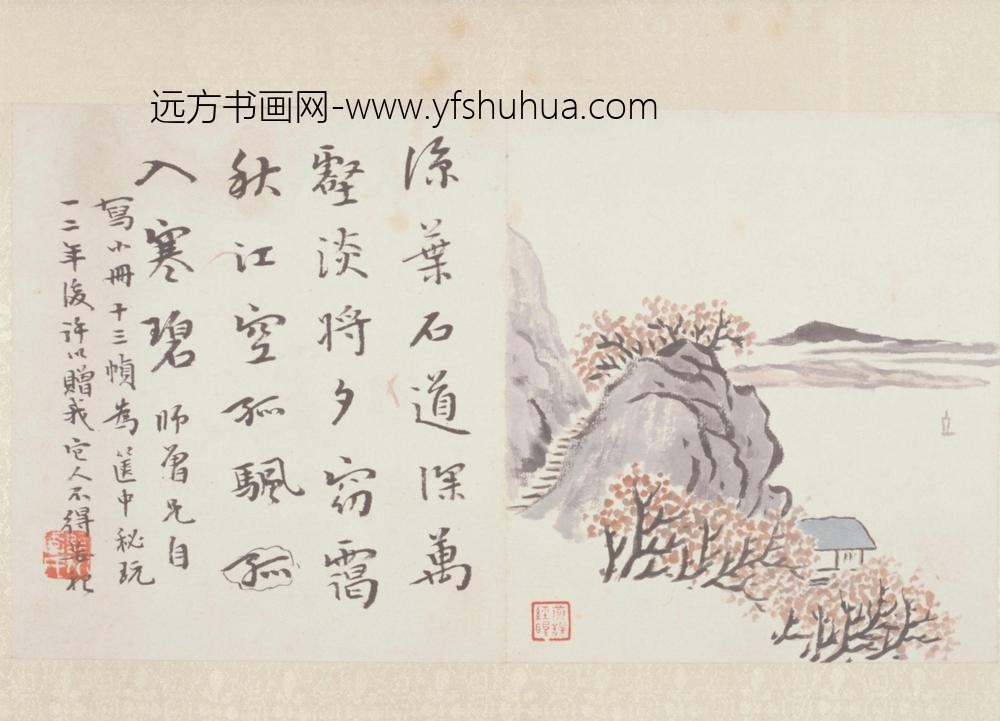 远方书画网-www.yfshuhua.com
涼葉石道深萬
壑淡將夕窈靄
秋江空孤颿孤
入寒碧 師曾兄自
寫小冊十三幀為篋中秘玩
一二年後許以贈我它人不得